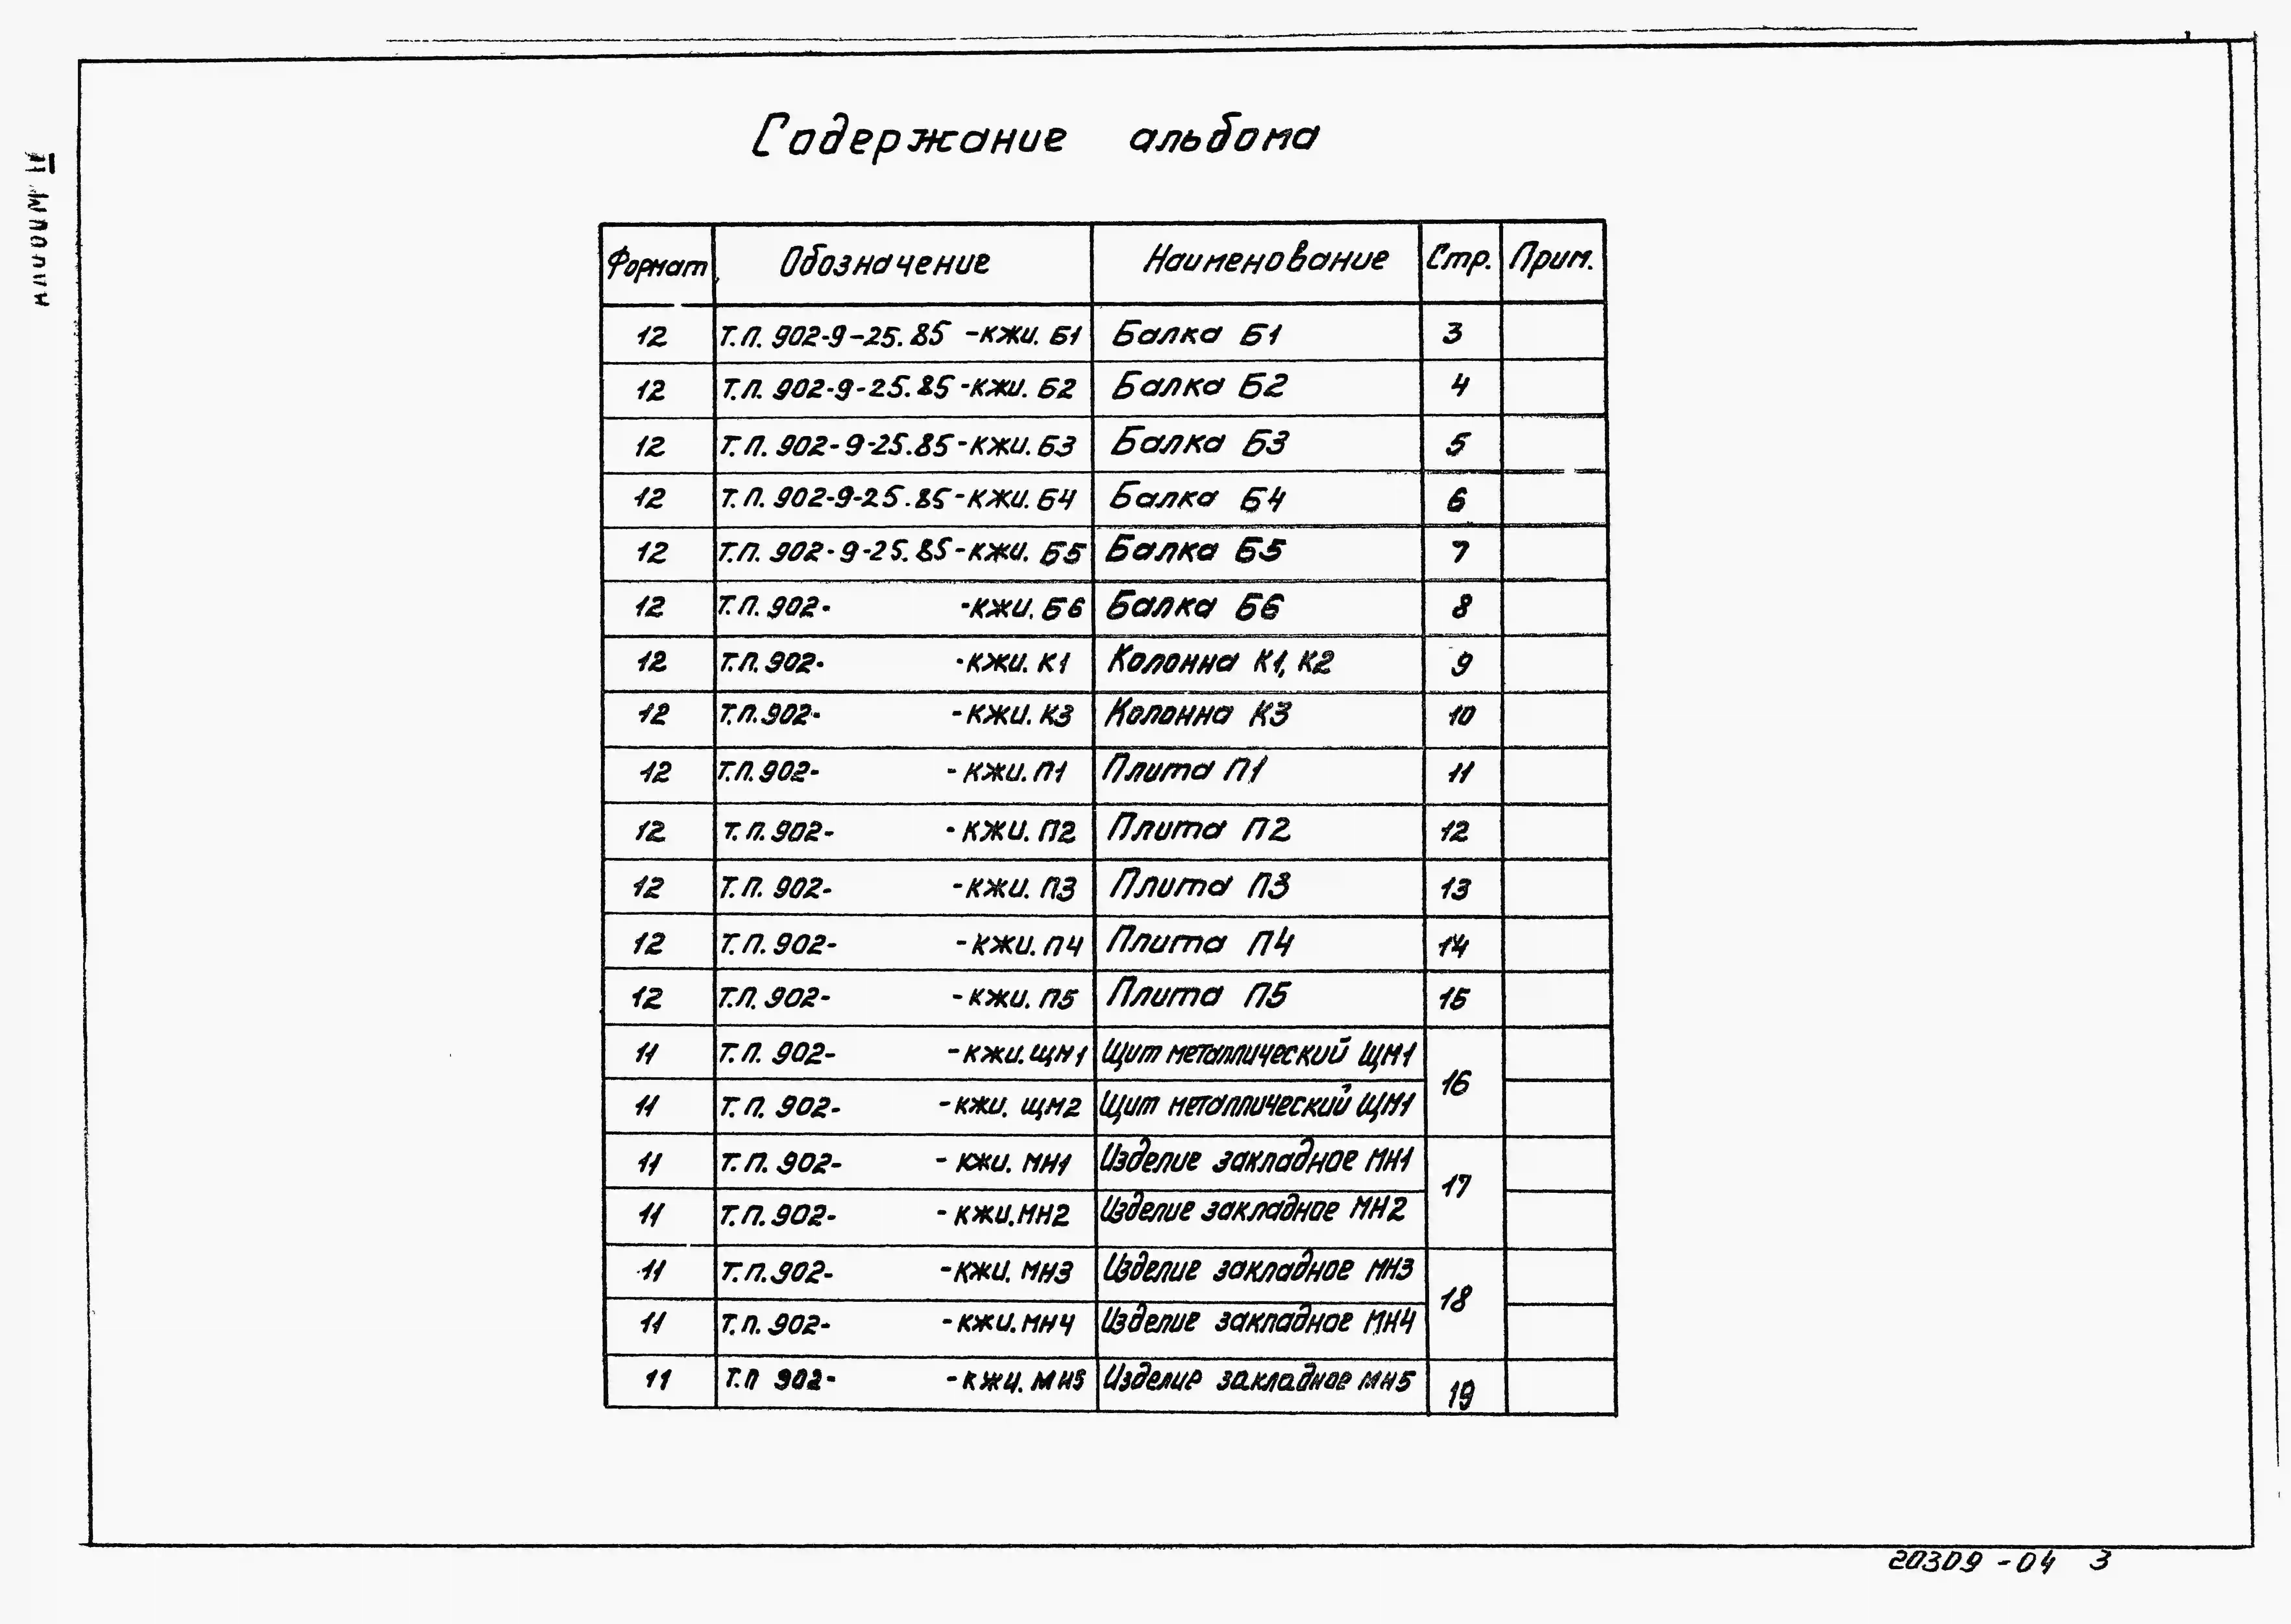 Содержание альбома
Формат Обозначение Наименование Стр. Прим.
12 Т.П. 902-9-25.85 -КЖИ. Б1 Балка Б1 3
12 Т.П. 902-9-25.85-КЖИ. Б2 Балка Б2 4
12 Т.П. 902-9-25.85-КЖИ. Б3 Балка Б3 5
12 Т.П. 902-9-25.85-КЖИ. Б4 Балка Б4 6
12 Т.П. 902-9-25.85-КЖИ. Б5 Балка Б5 7
12 Т.П. 902- -КЖИ. Б6 Балка Б6 8
12 Т.П. 902- -КЖИ. К1 Колонна К1, К2 9
12 Т.П. 902- -КЖИ. К3 Колонна К3 10
12 Т.П. 902- -КЖИ. П1 Плита П1 11
12 Т.П. 902- -КЖИ. П2 Плита П2 12
12 Т.П. 902- -КЖИ. П3 Плита П3 13
12 Т.П. 902- -КЖИ. П4 Плита П4 14
12 Т.П. 902- -КЖИ. П5 Плита П5 15
11 Т.П. 902- -КЖИ. ЩМ1 Щит металлический ЩМ1 16
11 Т.П. 902- -КЖИ. ЩМ2 Щит металлический ЩМ1
11 Т.П. 902- -КЖИ. МН1 Изделие закладное МН1 17
11 Т.П. 902- -КЖИ. МН2 Изделие закладное МН2
11 Т.П. 902- -КЖИ. МН3 Изделие закладное МН3 18
11 Т.П. 902- -КЖИ. МН4 Изделие закладное МН4
11 Т.П 902- -КЖИ. МН5 Изделие закладное МН5 19
20309 -04 3